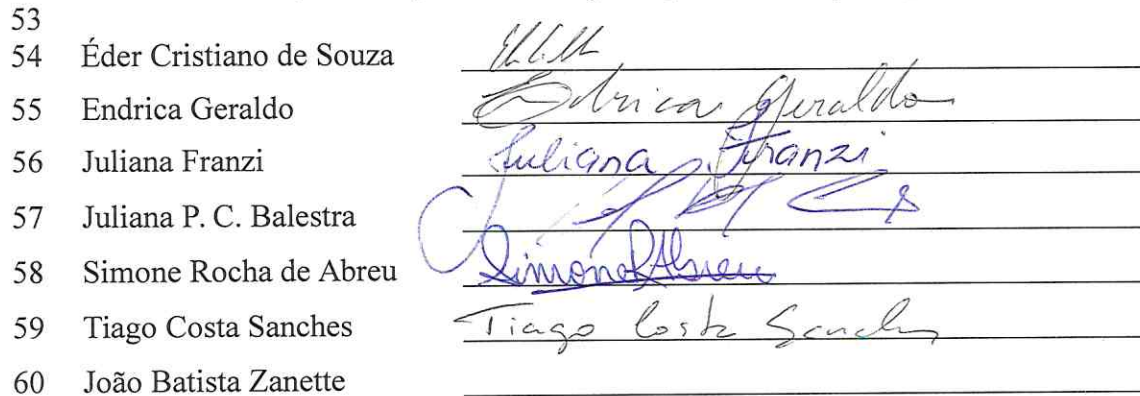 53
54 Éder Cristiano de Souza
55 Endrica Geraldo Endrica Geraldo
56 Juliana Franzi Juliana Franzi
57 Juliana P. C. Balestra
58 Simone Rocha de Abreu SimoneRAbreu
59 Tiago Costa Sanches Tiago Costa Sanches
60 João Batista Zanette